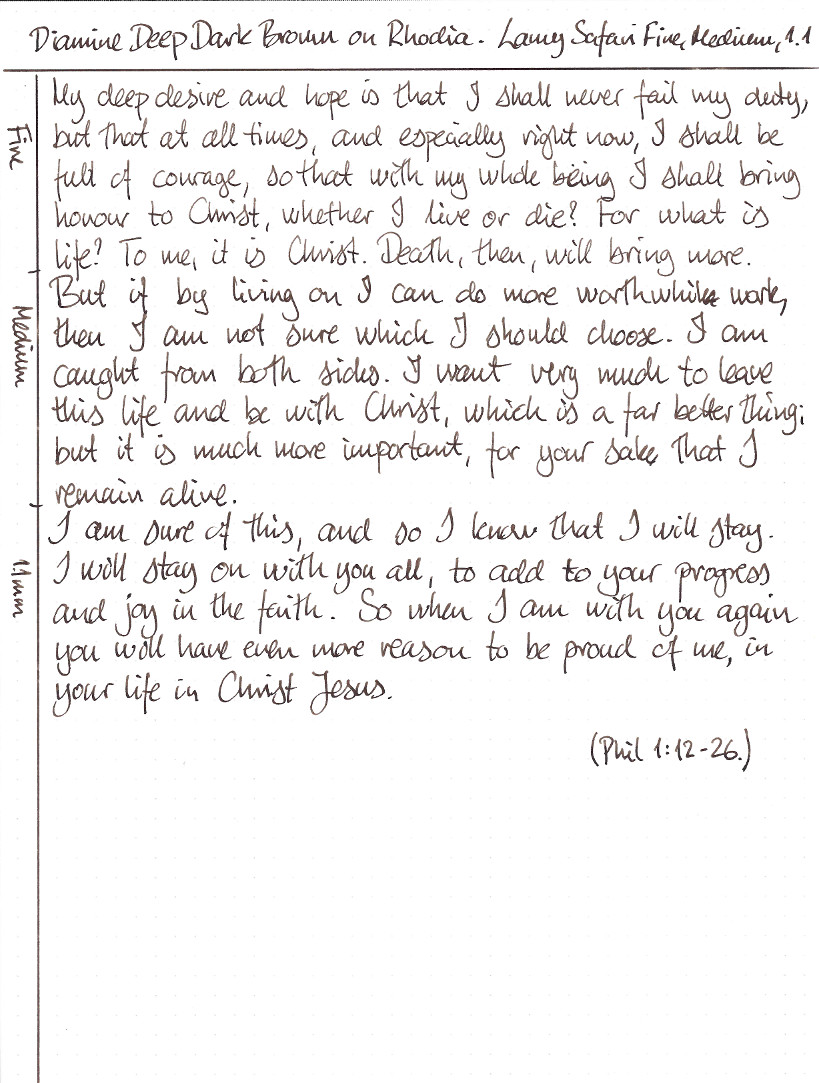 Diamine Deep Dark Brown on Rhodia. Lamy Safari Fine, Medium, 1.1
Fine
My deep desire and hope is that I shall never fail my duty,
but that at all times, and especially right now, I shall be
full of courage, so that with my whole being I shall bring
honour to Christ, whether I live or die? For what is
life? To me, it is Christ. Death, then, will bring more.
Medium
But if by living on I can do more worthwhile work,
then I am not sure which I should choose. I am
caught from both sides. I want very much to leave
this life and be with Christ, which is a far better thing;
but it is much more important, for your sake that I
remain alive.
1.1mm
I am sure of this, and so I know that I will stay.
I will stay on with you all, to add to your progress
and joy in the faith. So when I am with you again
you will have even more reason to be proud of me, in
your life in Christ Jesus.
(Phil 1:12-26.)